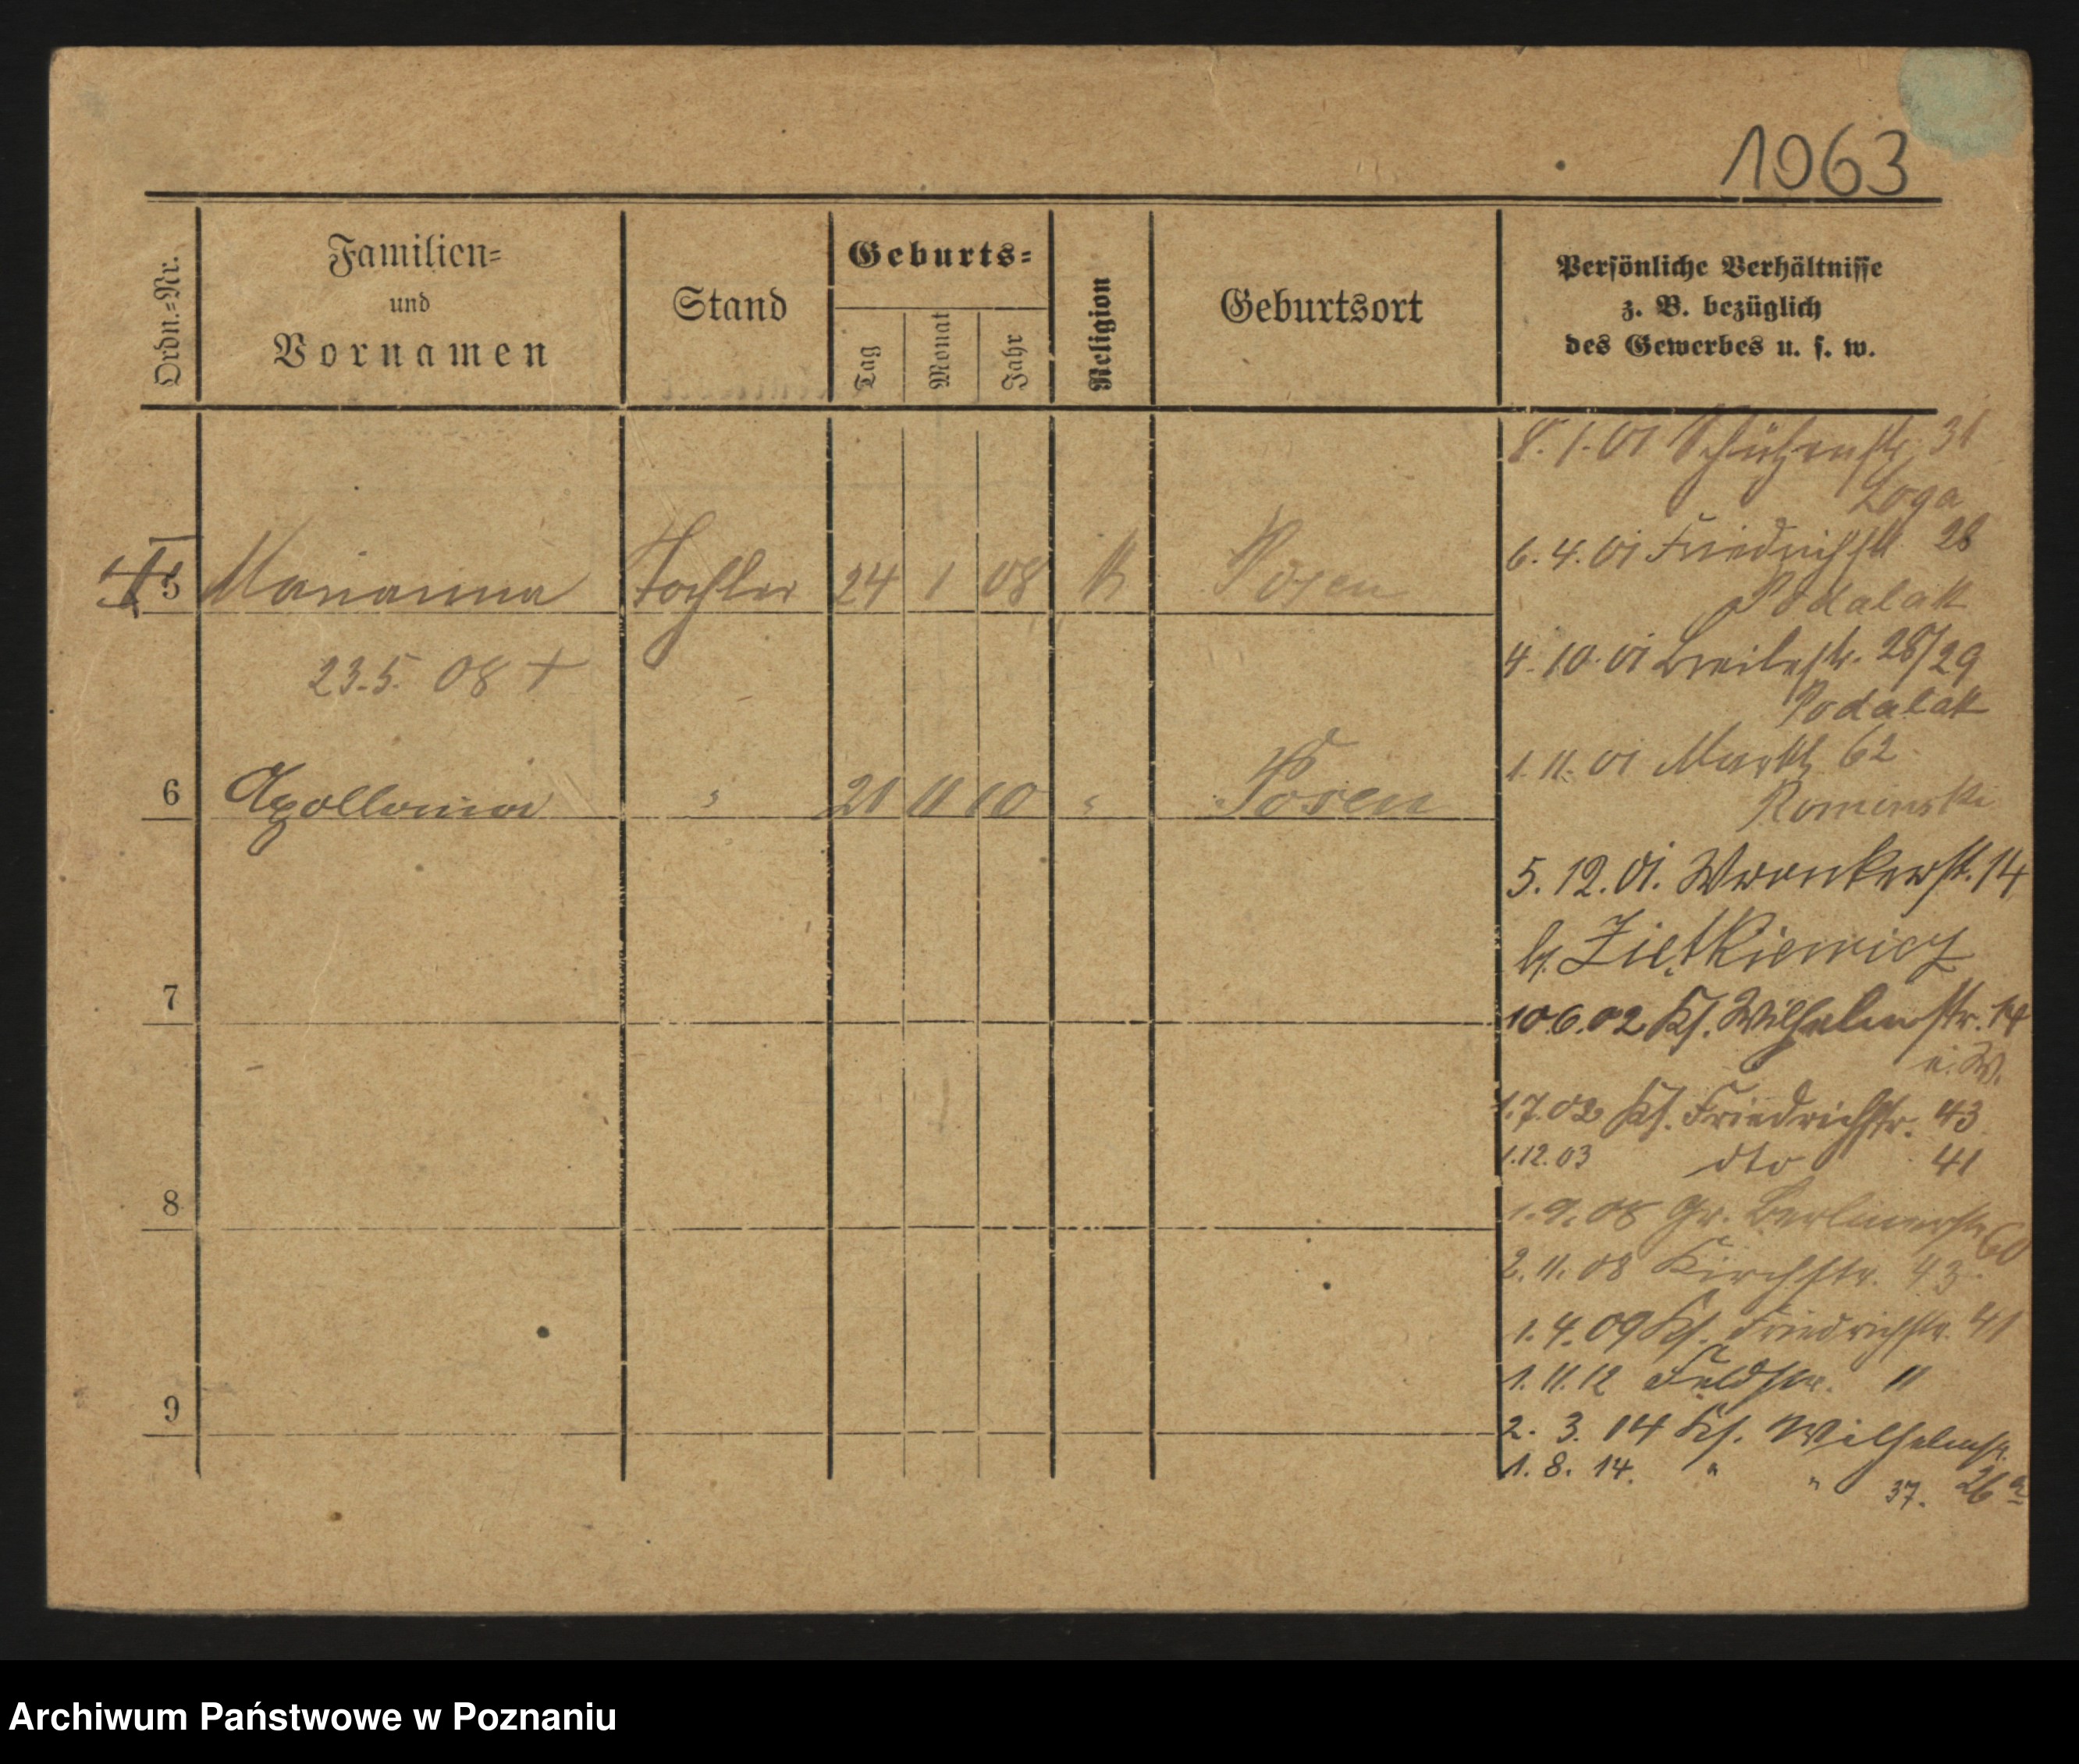 1063
Ordn.=Nr.
Familien=
und
Vornamen
Stand
Geburts=
Tag
Monat
Jahr
Religion
Geburtsort
Persönliche Verhältnisse
z. B. bezüglich
des Gewerbes u. s. w.
8.1.01 Schützenstr. 31
Loga
6.4.01 Friedrichstr 28
Podalak
4.10.01 Breitestr. 28/29
Podalak
1.11.01 Markt 62
Rominski
5.12.01. Wronkerstr. 14
b. Ziętkiewicz
10.6.02 Kl. Wilhelmstr. 14
1.7.02 Kl. Friedrichstr. 43
1.12.03 dto 41
1.9.08 Gr. Berlinerstr 60
2.11.08 Kirchstr. 43
1.4.09 Kl. Friedrichstr. 41
1.11.12 Feldstr. 11
2. 3. 14 Kl. Wilhelmstr.
26a
1. 8. 14. " " 37.
5 Marianna Tochter 24 1 08 K Posen
23.5. 08 +
6 Apollonia " 21 11 10 " Posen
7
8
9
Archiwum Państwowe w Poznaniu